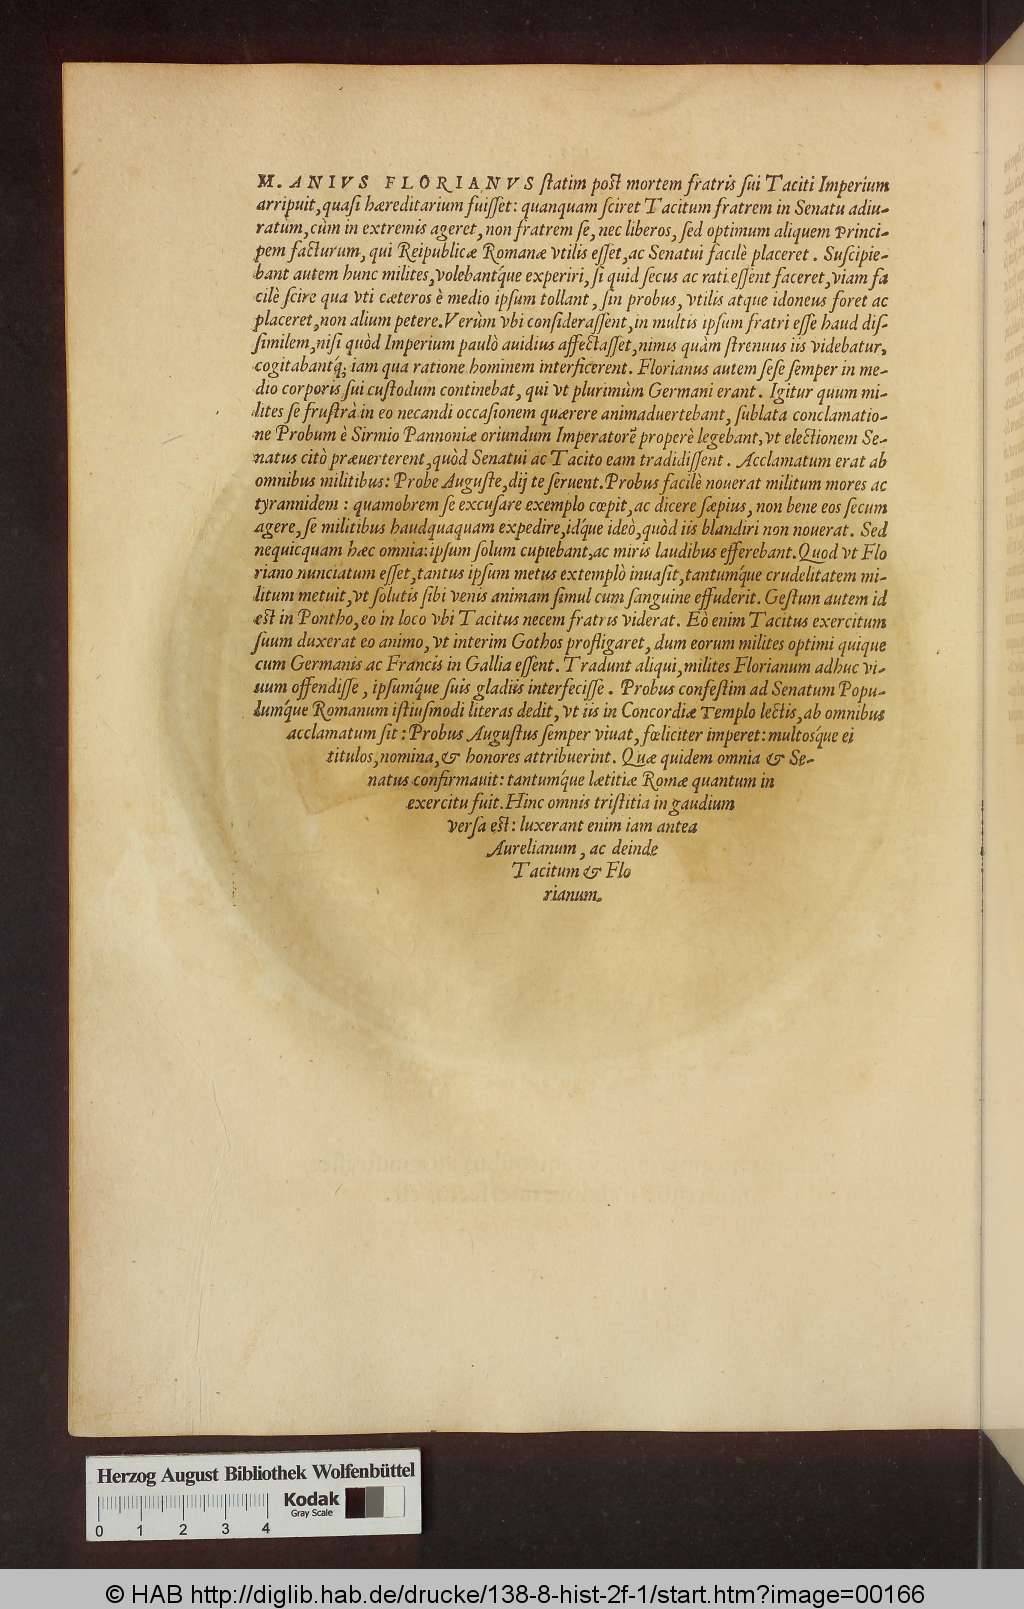 M. ANIVS FLORIANVS ſtatim poſt mortem fratris ſui Taciti Imperium
arripuit, quaſi hæreditarium fuiſſet: quanquam ſciret Tacitum fratrem in Senatu adiu-
ratum, cùm in extremis ageret, non fratrem ſe, nec liberos, ſed optimum aliquem Princi-
pem facturum, qui Reipublicæ Romanæ vtilis eſſet, ac Senatui facilè placeret. Suſcipie-
bant autem hunc milites, volebantq́ue experiri, ſi quid ſecus ac rati eſſent faceret, viam fa
cilè ſcire qua vti cæteros è medio ipſum tollant, ſin probus, vtilis atque idoneus foret ac
placeret, non alium petere. Verùm vbi conſideraſſent, in multis ipſum fratri eſſe haud diſ-
ſimilem, niſi quòd Imperium paulò auidius affectaſſet, nimis quàm ſtrenuus iis videbatur,
cogitabantq́; iam qua ratione hominem interficerent. Florianus autem ſeſe ſemper in me-
dio corporis ſui cuſtodum continebat, qui vt plurimùm Germani erant. Igitur quum mi-
lites ſe fruſtrà in eo necandi occaſionem quærere animaduertebant, ſublata conclamatio-
ne Probum è Sirmio Pannoniæ oriundum Imperatorē properè legebant, vt electionem Se-
natus citò præuerterent, quòd Senatui ac Tacito eam tradidiſſent. Acclamatum erat ab
omnibus militibus: Probe Auguſte, dij te ſeruent. Probus facilè nouerat militum mores ac
tyrannidem: quamobrem ſe excuſare exemplo cœpit, ac dicere ſæpius, non bene eos ſecum
agere, ſe militibus haudquaquam expedire, idq́ue ideò, quòd iis blandiri non nouerat. Sed
nequicquam hæc omnia: ipſum ſolum cupiebant, ac miris laudibus efferebant. Quod vt Flo
riano nunciatum eſſet, tantus ipſum metus extemplò inuaſit, tantumq́ue crudelitatem mi-
litum metuit, vt ſolutis ſibi venis animam ſimul cum ſanguine effuderit. Geſtum autem id
eſt in Pontho, eo in loco vbi Tacitus necem fratris viderat. Eò enim Tacitus exercitum
ſuum duxerat eo animo, vt interim Gothos profligaret, dum eorum milites optimi quique
cum Germanis ac Francis in Gallia eſſent. Tradunt aliqui, milites Florianum adhuc vi-
uum offendiſſe, ipſumq́ue ſuis gladiis interfeciſſe. Probus confeſtim ad Senatum Popu-
lumq́ue Romanum iſtiuſmodi literas dedit, vt iis in Concordiæ Templo lectis, ab omnibus
acclamatum ſit: Probus Auguſtus ſemper viuat, fœliciter imperet: multosq́ue ei
titulos, nomina, & honores attribuerint. Quæ quidem omnia & Se-
natus confirmauit: tantumq́ue lætitiæ Romæ quantum in
exercitu fuit. Hinc omnis triſtitia in gaudium
verſa eſt: luxerant enim iam antea
Aurelianum, ac deinde
Tacitum & Flo
rianum.
Herzog August Bibliothek Wolfenbüttel
Kodak
Gray Scale
0 1 2 3 4
© HAB http://diglib.hab.de/drucke/138-8-hist-2f-1/start.htm?image=00166